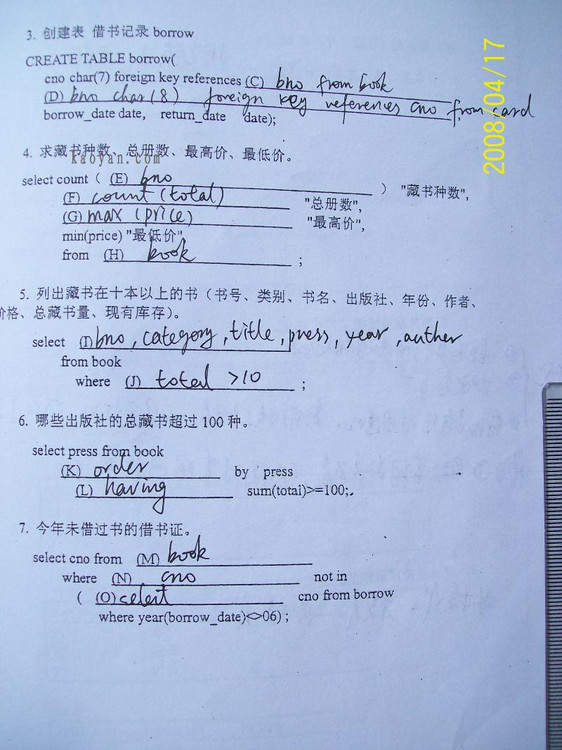 3. 创建表 借书记录 borrow
CREATE TABLE borrow(
cno char(7) foreign key references (C) bno from book
(D) bno char(8) foreign key references cno from card
borrow_date date, return_date date);
4. 求藏书种数、总册数、最高价、最低价。
kaoyan.com
select count ( (E) bno ) "藏书种数",
(F) count (total) "总册数",
(G) max (price) "最高价",
min(price) "最低价"
from (H) book ;
5. 列出藏书在十本以上的书（书号、类别、书名、出版社、年份、作者、
价格、总藏书量、现有库存）。
select (I) bno, category, title, press, year, auther
from book
where (J) total >10 ;
6. 哪些出版社的总藏书超过 100 种。
select press from book
(K) order by press
(L) having sum(total)>=100;.
7. 今年未借过书的借书证。
select cno from (M) book
where (N) cno not in
( (O) select cno from borrow
where year(borrow_date)<>06) ;
2008/04/17